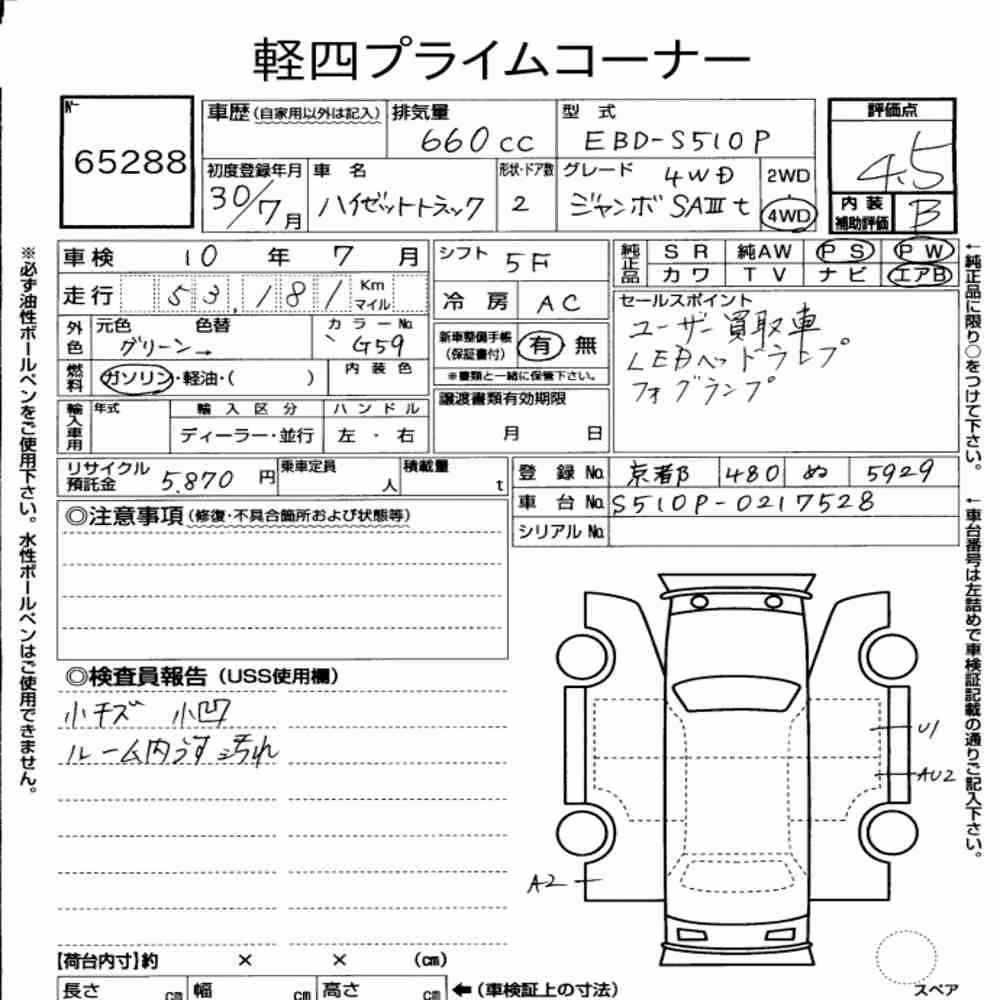 軽四プライムコーナー
No 65288
車歴(自家用以外は記入) 排気量 660cc 型式 EBD-S510P 評価点 4.5
初度登録年月 30/7月 車名 ハイゼットトラック 形状・ドア数 2 グレード 4WD ジャンボSAⅢt 2WD 4WD 内装補助評価 B
車検 10年 7月 シフト 5F 純正品 SR 純AW PS PW
カワ TV ナビ エアB
走行 53,181 Km マイル 冷房 AC
セールスポイント
ユーザー買取車
LEDヘッドランプ
フォグランプ
外色 元色 グリーン 色替 → カラーNo. G59 新車整備手帳(保証書付) 有 無
※書類と一緒に保管下さい。
燃料 ガソリン・軽油・( ) 内装色
譲渡書類有効期限 月 日
輸入車用 年式 輸入区分 ハンドル
ディーラー・並行 左・右
リサイクル預託金 5,870円 乗車定員 人 積載量 t
登録No. 京都 480 ぬ 5929
車台No. S510P-0217528
シリアルNo.
◎注意事項(修復・不具合箇所および状態等)
◎検査員報告(USS使用欄)
小キズ 小凹
ルーム内うす汚れ
U1
AU2
A2
【荷台内寸】約 × × (cm)
長さ cm 幅 cm 高さ cm ←(車検証上の寸法)
スペア
※必ず油性ボールペンをご使用下さい。水性ボールペンはご使用できません。
←純正品に限り○をつけて下さい。
←車台番号は左詰めで車検証記載の通りご記入下さい。